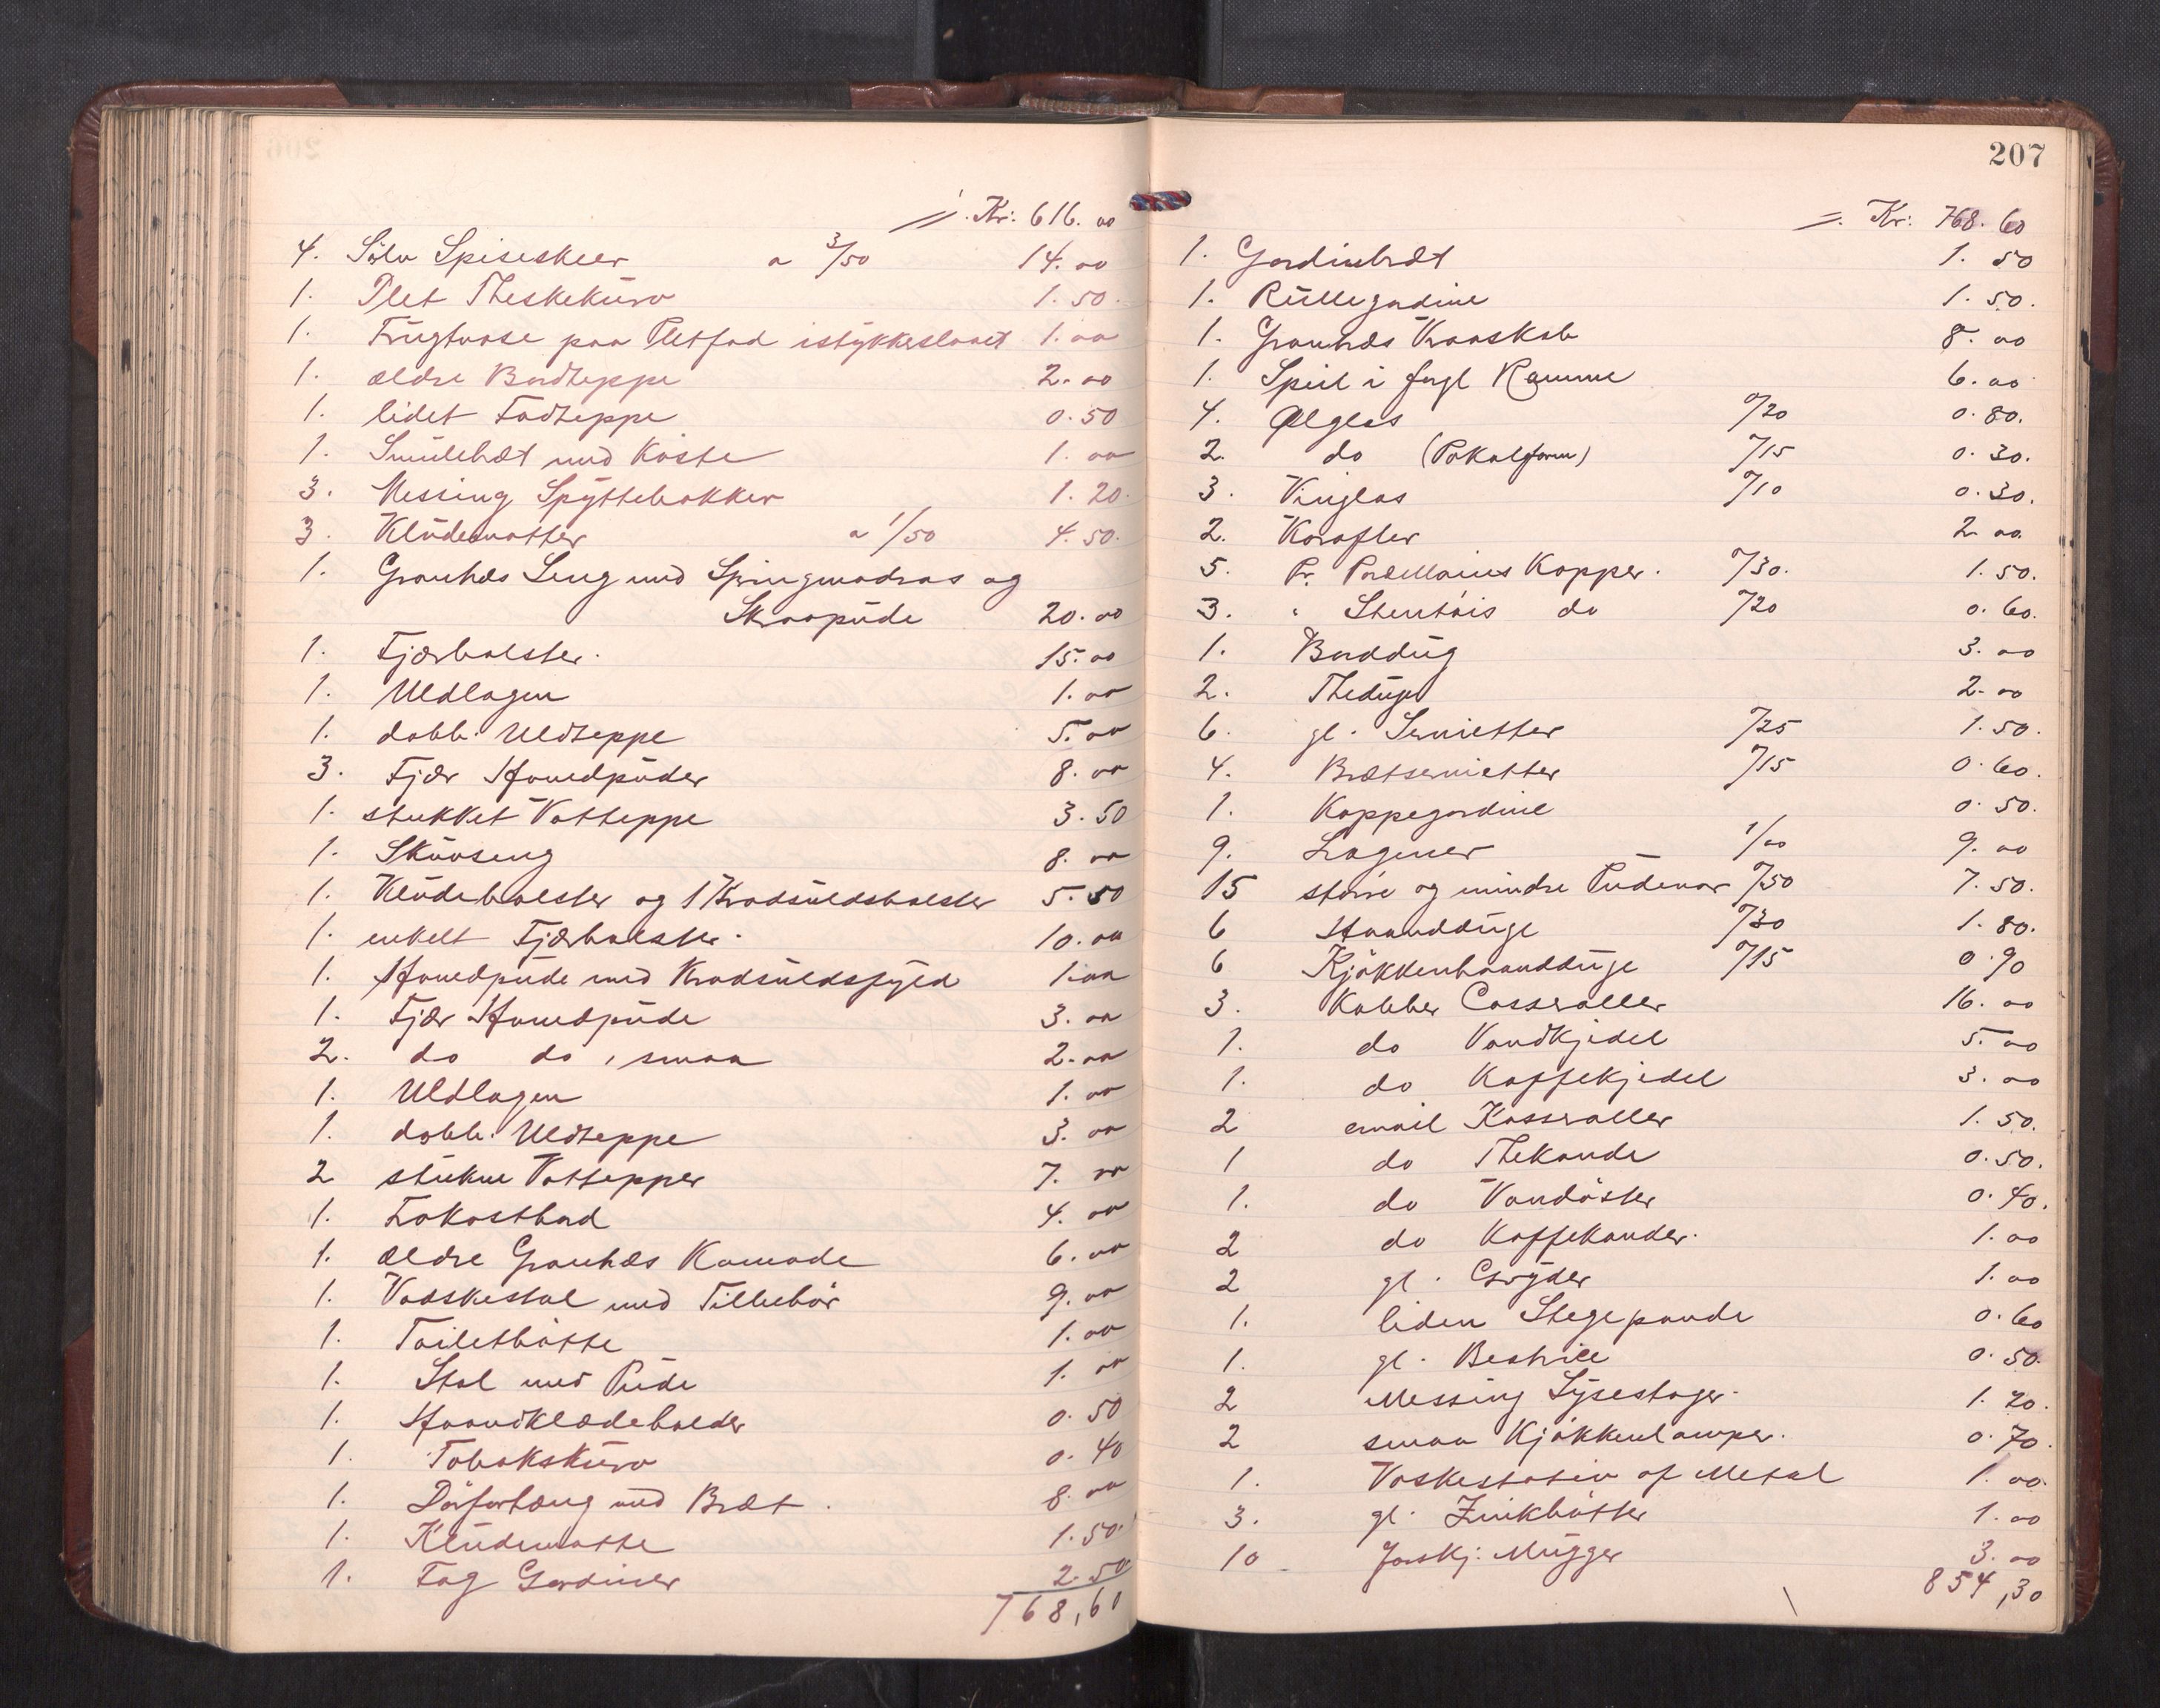 Kr: 616. 00
4. Sölv Spiseskeer a 3/50 14. 00
1. Plet Theskekurv 1. 50.
1. Frugtvase paa Pletfad istykkeslaaet 1. 00
1. ældre Bordteppe 2. 00
1. lidet Fodteppe 0. 50
1. Smulebræt med Koste 1. 00
3. Messing Spyttebakker 1. 20.
3. Kludematter a 1/50 4. 50.
1. Granhæs Seng med Springmadras og
Skraapude 20. 00
1. Fjærbolster. 15. 00
1. Uldlagen 1. 00
1. dobb. Uldteppe 5. 00
3. Fjær Hovedpuder 8. 00
1. stukket Vatteppe 3. 50
1. Skuvseng 8. 00
1. Kludebolster og 1 Kradsuldsbolster 5. 50
1. enkelt Fjærbolster. 10. 00
1. Hovedpude med Kradsuldsfyld 1. 00
1. Fjær Hovedpude 3. 00
2. do do, smaa 2. 00
1. Uldlagen 1. 00
1. dobb. Uldteppe 3. 00
2 stukne Vattepper 7. 00
1. Frokostbord 4. 00
1. ældre Granhæs Komode 6. 00
1. Vaskestol med Tilbehör 9. 00
1. Toiletbötte 1. 00
1. Stol med Pude 1. 00
1. Haandklædeholder 0. 50
1. Tobakskurv 0. 40
1. Dörforhæng med Bræt. 8. 00
1. Kludematte 1. 50.
1. Fag Gardiner 2. 50
768,60
207
Kr: 768. 60
1. Gardinbræt 1. 50
1. Rullegardine 1. 50.
1. Granhæs Kraaskab 8. 00
1. Speil i forgl Ramme 6. 00
4. Ølglas 0/20 0. 80.
2. do (Pokalform) 0/15 0. 30.
3. Vinglas 0/10 0. 30.
2. Karafler 2. 00.
5. Pr. Porcellains Kopper. 0/30. 1. 50.
3. " Stentöis do 0/20 0. 60.
1. Borddug 3. 00
2. Theduge 2. 00
6. gl. Servietter 0/25 1. 50.
4. Brætservietter 0/15 0. 60.
1. Kappegardine 0. 50.
9. Lagener 1/00 9. 00
15 större og mindre Pudevar 0/50 7. 50.
6 Haandduge 0/30 1. 80.
6 Kjökkenhaandduge 0/15 0. 90
3. Kobber Casseroller 16. 00
1. do Vandkjedel 5. 00
1. do Kaffekjedel 3. 00
2 email Kasseroller 1. 50.
1 do Thekande 0. 50.
1. do Vandöster 0. 40.
2 do Kaffekander. 1. 00
2 gl. Gryder 1. 00
1. liden Stegepande 0. 60
1. gl. Beatrice 0. 50.
2 Messing Lysestager. 1. 20.
2 smaa Kjökkenlamper. 0. 70.
1. Vaskestativ af Metal 1. 00.
3. gl. Zinkbötter 1. 00
10 forskj: Mugger 3. 00
854,30